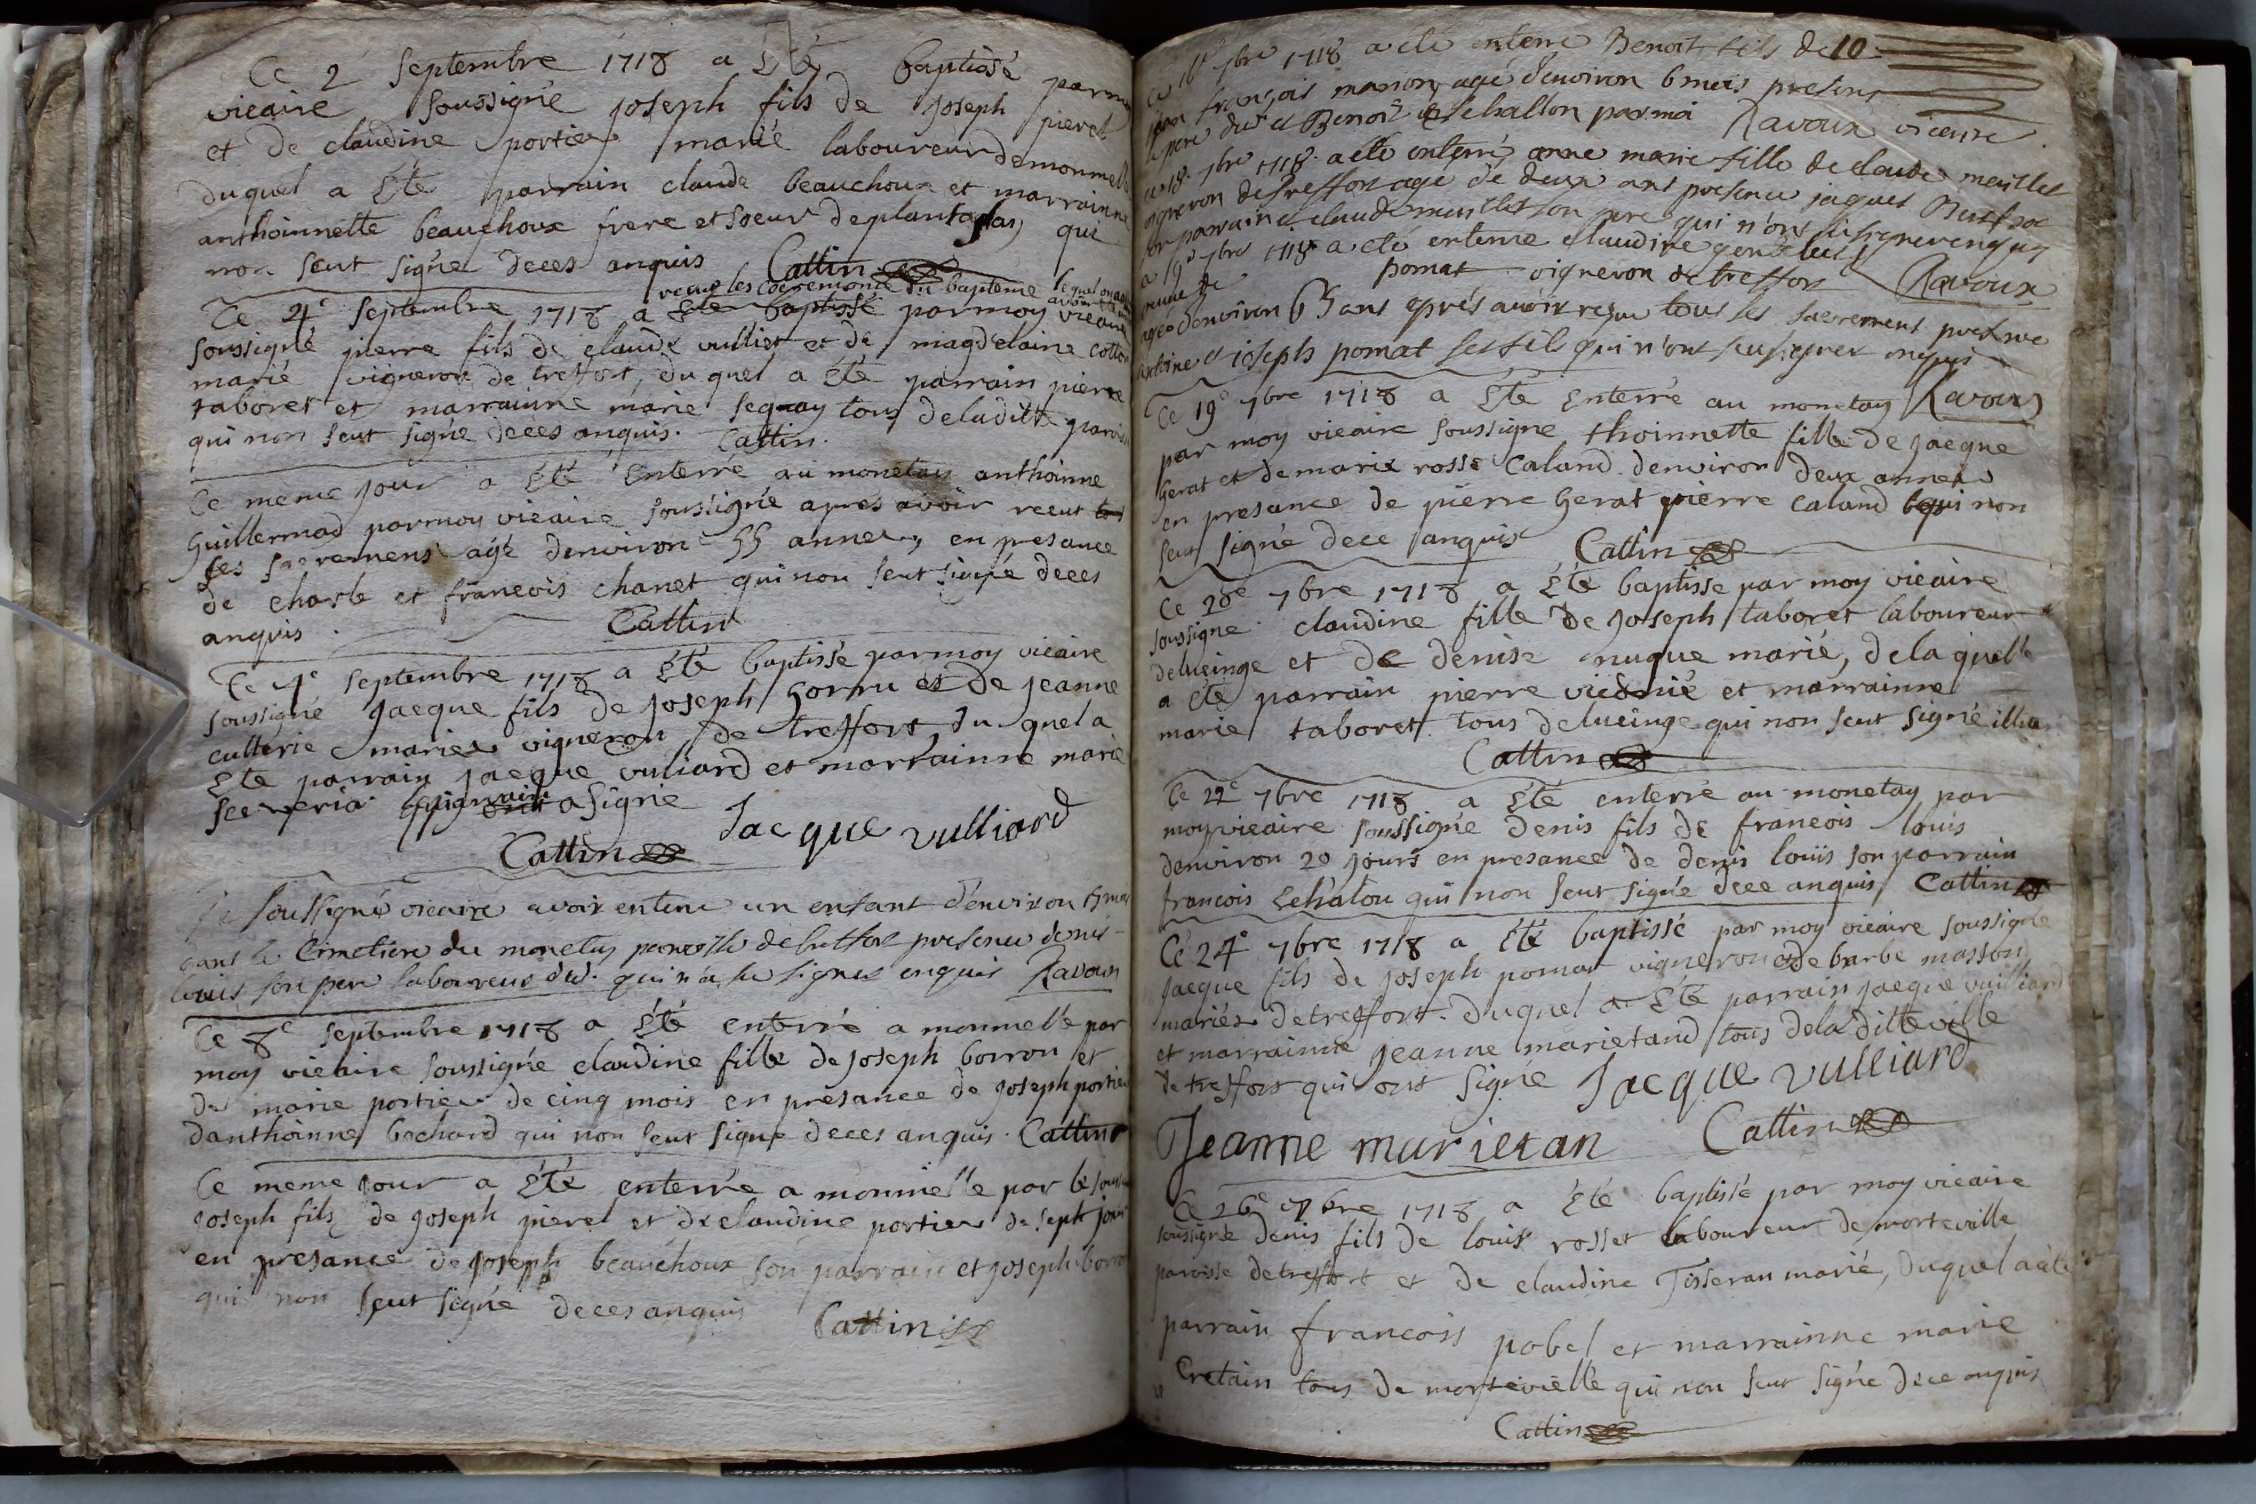 Ce 2 septembre 1718 a Été baptisé parmoy
vicaire soussigné joseph fils de joseph pierel
et de claudine portier marié laboureur demonmelle
duquel a Été parrain claude beauchoux et marrainne
anthoinnette beauchoux frere et soeur deplantaglay qui
non seut signé deces anquis Cattin
receut les ceremonie du bapteme
Ce 4e septembre 1718 a Été baptissé parmoy vicaire
soussigné pierre fils de claude vulliet et de magdelaine cotton
marié vigneron de treffort, du quel a Été parrain pierre
taboret et marrainne marie seqnay tous deladitte paroisse
qui non seut signé deces anquis. Cattin.
Ce meme jour a Été Enterré au monetay anthoinne
Guillermad parmoy vicaire soussignée apres avoir receut
les sacremens agé denviron 55 annes, en presance
de charle et francois chanet qui non seut signé deces
anquis. Cattin
Ce 4e septembre 1718 a Été baptissé parmoy vicaire
soussigné jacque fils de joseph gorru et de jeanne
cutterie maries vigneron de treffort, du quel a
Été parrain jacque vuliard et marrainne marie
sceveria a signé
Jacque vulliard
Cattin
Je soussigné vicaire avoir enterré un enfant d'environ
dans le Cimetiere du monetay paroisse detreffort presence denis
louis son pere laboureur dud. qui n'a su signer enquis Ravoux
Ce 8e septembre 1718 a Été enterré a monmelle par
moy vicaire soussigné claudine fille de joseph borron et
de marie portier de cinq mois en presance de joseph portier
danthoinne bochard qui non seut signe deces anquis. Cattin
Ce meme jour a Été enterré a monmelle par le sous
joseph fils de joseph pierel et de claudine portier de sept jour
en presance de joseph beauchoux son parrain et joseph borro
qui non seut signé deces anquis Cattin
10
ce 16e 7bre 1718 a eté enterré Benoit fils de
jean françois marion agé d'environ 6 mois present
le pere dud et Benoit echallon par moi Ravoux vicaire
ce 18. 7bre 1718. a eté enterré anne marie fille de claude meillet
vigneron detreffort agé de deux ans presence jaques
son parrain et claude meillet son pere qui n'ont su signer enquis
a 19e 7bre 1718 a eté enterré claudine
veuve de pomat vigneron de treffort Ravoux
agée d'environ 65 ans aprés avoir reçu tous les sacremens presence
antoine et joseph pomat ses fils qui n'ont su signer enquis
Ravoux
Ce 19e 7bre 1718 a Été Enterré au monetay
par moy vicaire soussigné thoinnette fille de jacque
Gerat et demarie rosse Caland denviron deux annes
en presance de pierre Gerat pierre caland qui non
seut signé dece anquis Cattin
Ce 20e 7bre 1718 a Été baptisse par moy vicaire
soussigne claudine fille de joseph taboret laboureur
delucinge et de denise nuque marié, dela quelle
a Été parrain pierre viedmié et marrainne
marie taboret tous delucinge qui non seut signé
Cattin
Ce 22e 7bre 1718 a Été enterré au monetay par
moy vicaire soussigné denis fils de francois louis
denviron 20 jours en presance de denis louis son parrain
francois Echalou qui non seut signé dece anquis Cattin
Ce 24e 7bre 1718 a Été baptissé par moy vicaire soussigné
jacque fils de joseph pomat vigneron et de barbe masson
mariés detreffort. duquel a Été parrain jacque vuilliard
et marrainne jeanne marietand tous dela ditte ville
de treffort qui ont signé Jacque vulliard
Jeanne murietan Cattin
Ce 26e 7bre 1718 a Été baptisé par moy vicaire
soussigné denis fils de louis rosset laboureur de morteville
paroisse detreffort et de claudine Tisseran marié, duquel a été
parrain francois pobel et marrainne marie
Cretain tous de morteville qui non seut signé dece anquis
Cattin